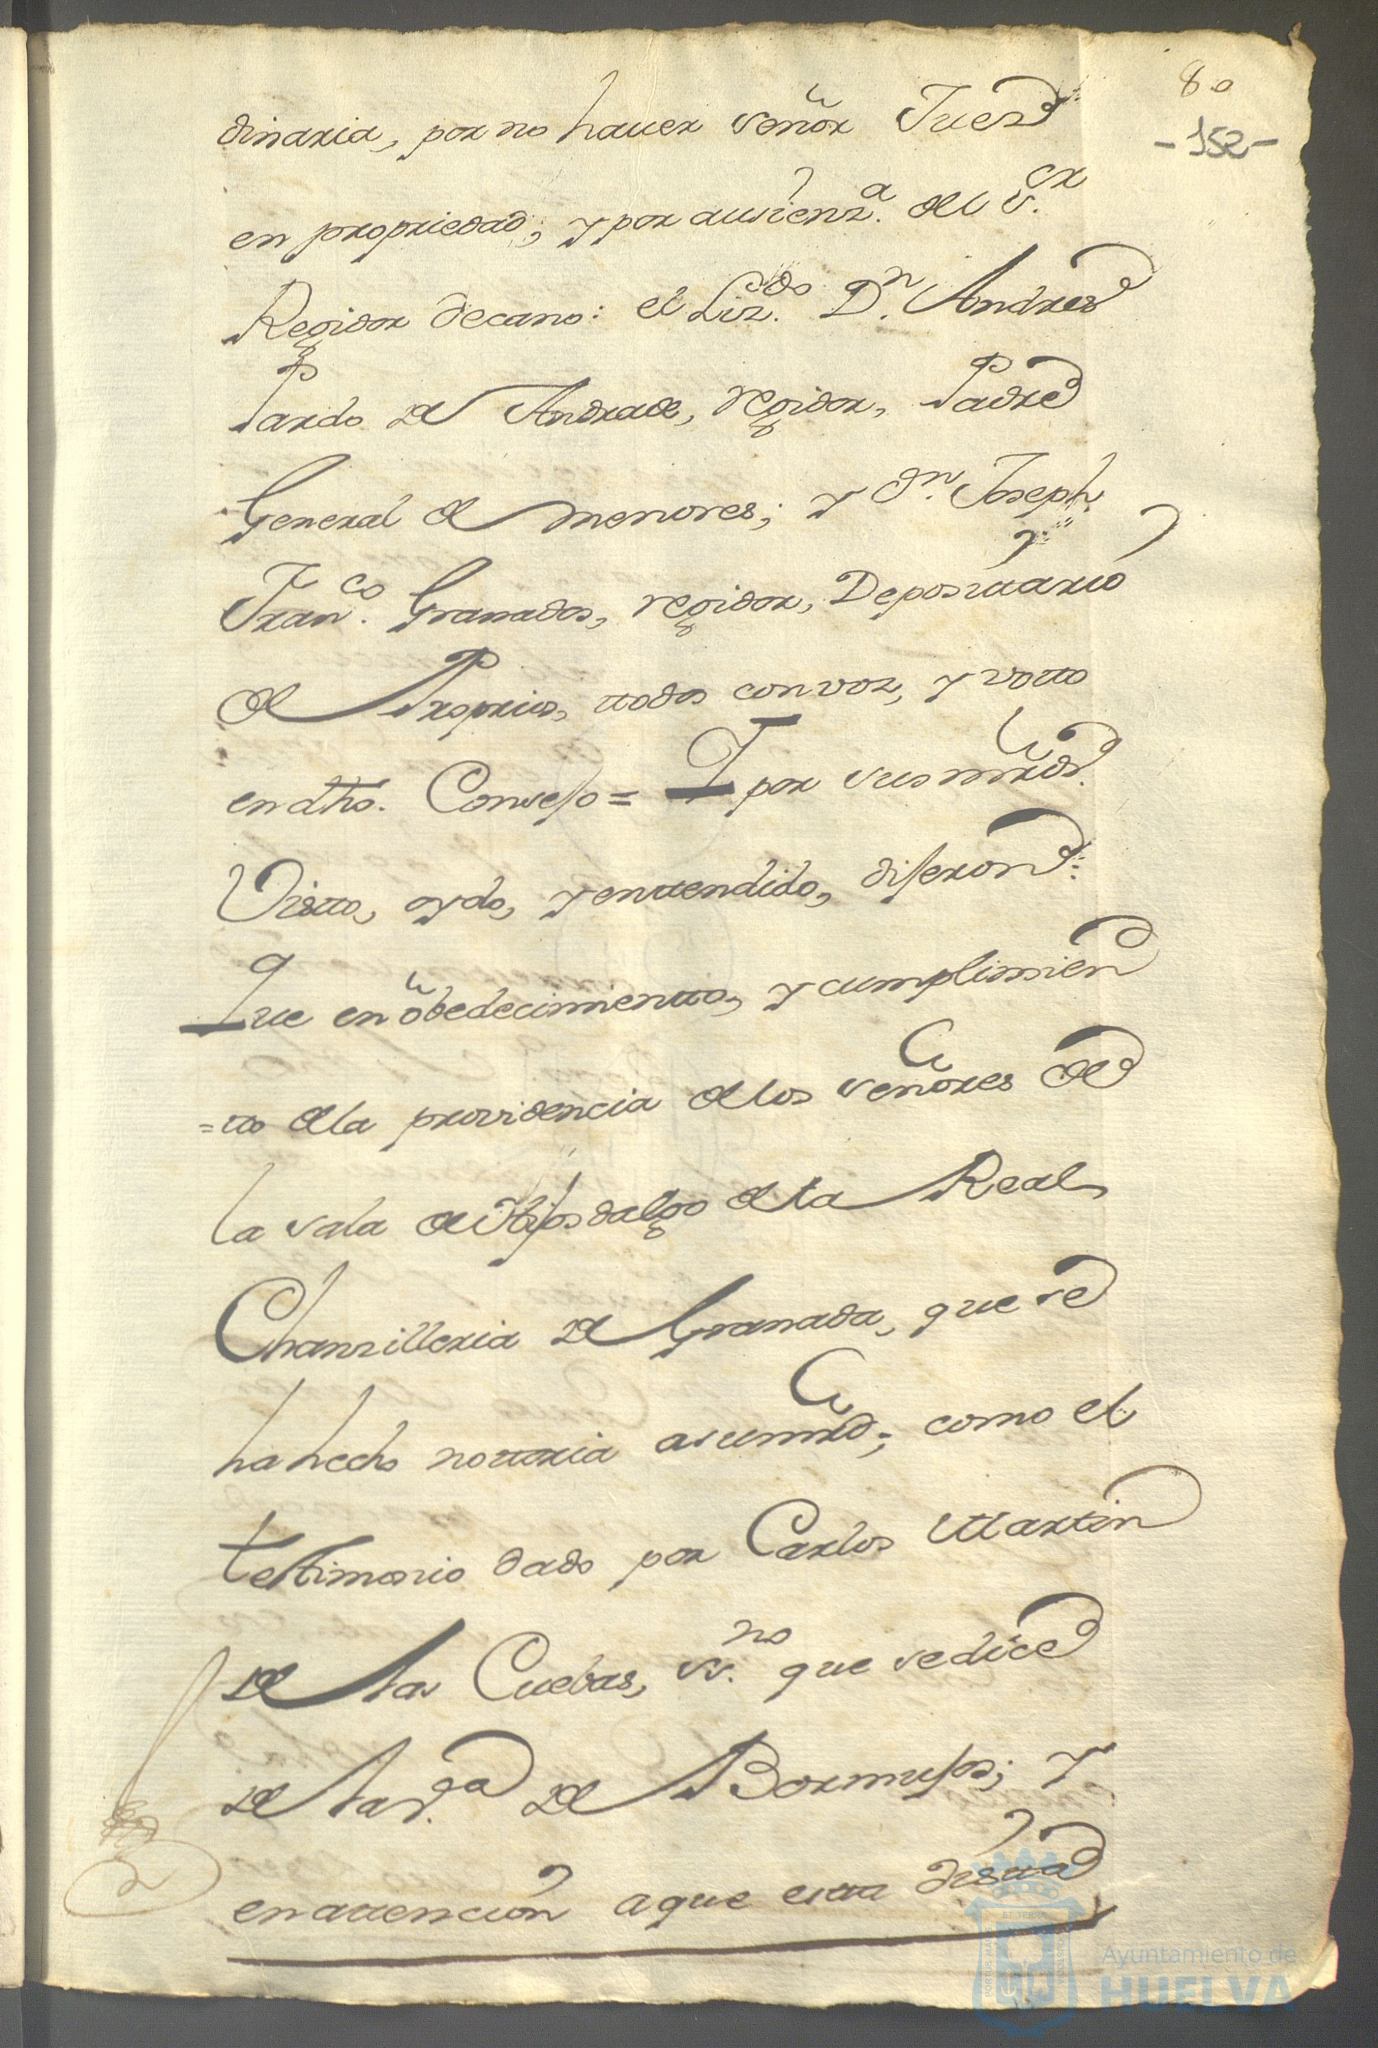 80
-152-
dinaria, por no hauer señor Juez
en propriedad, y por ausienz.ª del S.or
Regidor decano: el Liz.do D.n Andres
Pardo de Andrade, regidor, Padre
General de menores; y d.n Joseph
Fran.co Granados, regidor, Depositario
de Proprios, ttodos con voz, y votto
en dho. Consejo = I por sus mrds.
Vistto, oydo, y enttendido, dijeron:
Que en obedecimientto, y cumplimien
=tto de la providencia de los señores de
la sala de Hijosdalgo de la Real
Chanzilleria de Granada, que se
ha hecho nottoria a su mrd; como el
testimonio dado por Carlos Martin
de las Cuebas, ss.no que se dice
de la v.ª de Bormujos; y
en attencion a que estta distta
Ayuntamiento de
HUELVA